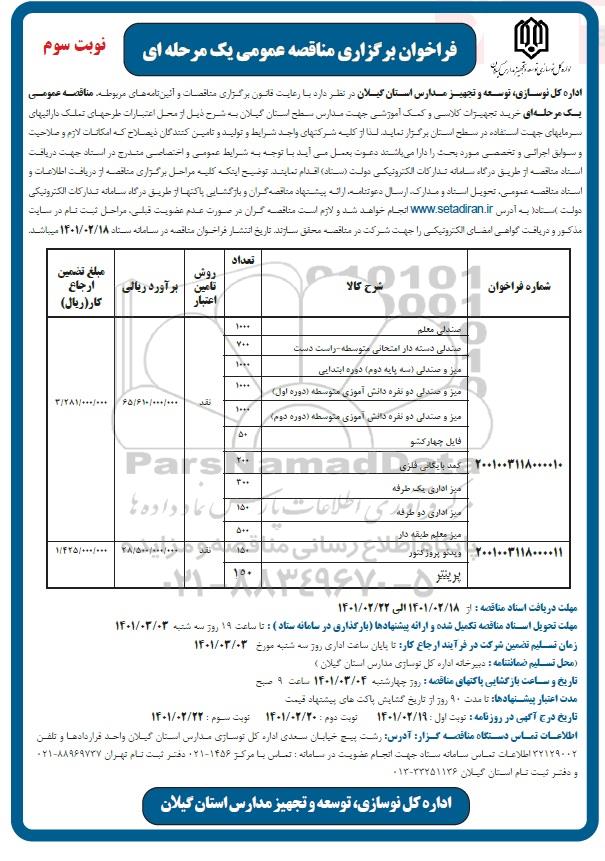 اداره کل نوسازی توسعه و تجهیز مدارس گیلان
فراخوان برگزاری مناقصه عمومی یک مرحله ای
نوبت سوم
اداره کل نوسازی، توسعه و تجهیز مدارس استان گیلان در نظر دارد با رعایت قانون برگزاری مناقصات و آئین‌نامه‌های مربوطه، مناقصه عمومی
یک مرحله‌ای خرید تجهیزات کلاسی و کمک آموزشی جهت مدارس سطح استان گیلان به شرح ذیل از محل اعتبارات طرحهای تملک دارائیهای
سرمایهای جهت استفاده در سطح استان برگزار نماید. لذا از کلیه شرکتهای واجد شرایط و تولید و تامین کنندگان ذیصلاح که امکانات لازم و صلاحیت
و سوابق اجرائی و تخصصی مورد بحث را دارا می‌باشند دعوت بعمل می آید با توجه به شرایط عمومی و اختصاصی مندرج در اسناد جهت دریافت
اسناد مناقصه از طریق درگاه سامانه تدارکات الکترونیکی دولت (ستاد) اقدام نمایند. توضیح اینکه کلیه مراحل برگزاری مناقصه از دریافت اطلاعات و
اسناد مناقصه عمومی، تحویل اسناد و مدارک، ارسال دعوتنامه، ارائه پیشنهاد مناقصه‌گران و بازگشایی پاکتها از طریق درگاه سامانه تدارکات الکترونیکی
دولت )ستاد( به آدرس www.setadiran.ir انجام خواهد شد و لازم است مناقصه گران در صورت عدم عضویت قبلی، مراحل ثبت نام در سایت
مذکور و دریافت گواهی امضای الکترونیکی را جهت شرکت در مناقصه محقق سازند. تاریخ انتشار فراخوان مناقصه در سامانه ستاد ۱۴۰۱/۰۲/۱۸ میباشد.
شماره فراخوان شرح کالا تعداد روش تامین اعتبار برآورد ریالی مبلغ تضمین ارجاع کار(ریال)
صندلی معلم ۱۰۰۰
صندلی دسته دار امتحانی متوسطه-راست دست ۷۰۰
میز و صندلی (سه پایه دوم) دوره ابتدایی ۱۰۰۰
میز و صندلی دو نفره دانش آموزی متوسطه (دوره اول) ۱۰۰۰
میز و صندلی دو نفره دانش آموزی متوسطه (دوره دوم) ۱۰۰۰ نقد ۶۵/۶۱۰/۰۰۰/۰۰۰ ۳/۲۸۱/۰۰۰/۰۰۰
فایل چهارکشو ۵۰
۲۰۰۱۰۰۳۱۱۸۰۰۰۰۱۰ کمد بایگانی فلزی ۲۰۰
میز اداری یک طرفه ۳۰۰
میز اداری دو طرفه ۱۵۰
میز معلم طبقه دار ۵۰۰
۲۰۰۱۰۰۳۱۱۸۰۰۰۰۱۱ ویدئو پروژکتور ۱۵۰ نقد ۲۸/۵۰۰/۰۰۰/۰۰۰ ۱/۴۲۵/۰۰۰/۰۰۰
پرینتر ۱۵۰
ParsNamadData
مرکز فرآوری اطلاعات پارس نماد داده‌ها
پایگاه اطلاع رسانی مناقصه و مزایده
۰۲۱-۸۸۳۴۹۶۷۰-۵
مهلت دریافت اسناد مناقصه : از ۱۴۰۱/۰۲/۱۸ الی ۱۴۰۱/۰۲/۲۲
مهلت تحویل اسناد مناقصه تکمیل شده و ارائه پیشنهادها (بارگذاری در سامانه ستاد ) : تا ساعت ۱۹ روز سه شنبه ۱۴۰۱/۰۳/۰۳
زمان تسلیم تضمین شرکت در فرآیند ارجاع کار: تا پایان ساعت اداری روز سه شنبه مورخ ۱۴۰۱/۰۳/۰۳
(محل تسلیم ضمانتنامه : دبیرخانه اداره کل نوسازی مدارس استان گیلان )
تاریخ و ساعت بازگشایی پاکتهای مناقصه : روز چهارشنبه ۱۴۰۱/۰۳/۰۴ ساعت ۹ صبح
مدت اعتبار پیشنهادها: تا مدت ۹۰ روز از تاریخ گشایش پاکت های پیشنهاد قیمت
تاریخ درج آگهی در روزنامه : نوبت اول : ۱۴۰۱/۰۲/۱۹ نوبت دوم : ۱۴۰۱/۰۲/۲۰ نوبت سوم : ۱۴۰۱/۰۲/۲۲
اطلاعات تماس دستگاه مناقصه گزار: آدرس: رشت پیچ خیابان سعدی اداره کل نوسازی مدارس استان گیلان واحد قراردادها و تلفن
۳۲۱۲۹۰۰۲ اطلاعات تماس سامانه ستاد جهت انجام عضویت در سامانه : تماس با مرکز ۱۴۵۶-۰۲۱ دفتر ثبت نام تهران ۸۸۹۶۹۷۳۷-۰۲۱
و دفتر ثبت نام استان گیلان ۳۳۲۵۱۱۳۶-۰۱۳
اداره کل نوسازی، توسعه و تجهیز مدارس استان گیلان